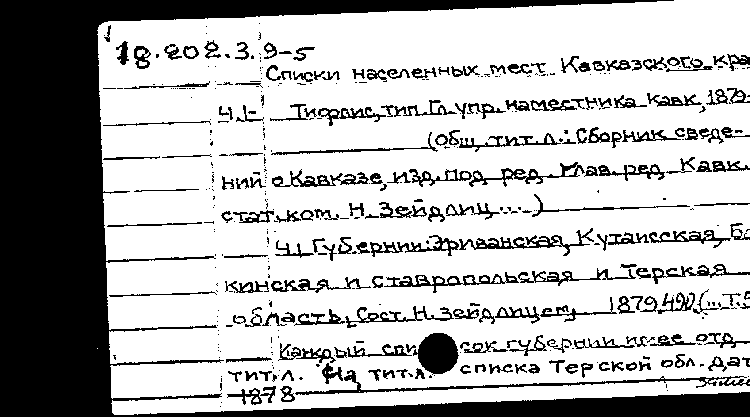 18.202.3.9-5
Списки населенных мест Кавказского кра
Ч.I- Тифлис, тип. Гл. упр. наместника Кавк, 1879-
(Общ. тит. л.: Сборник сведе-
ний о Кавказе, изд. под ред. Глав. ред. Кавк.
стат. ком. Н. Зейдлиц...)
Ч.I Губернии: Эриванская, Кутаисская, Ба
кинская и Ставропольская и Терская
область, Сост. Н. Зейдлицем, 1879, 490, (... Т.5
Каждый список губернии отд
тит. л. На тит. л. списка Терской обл. дат
1878